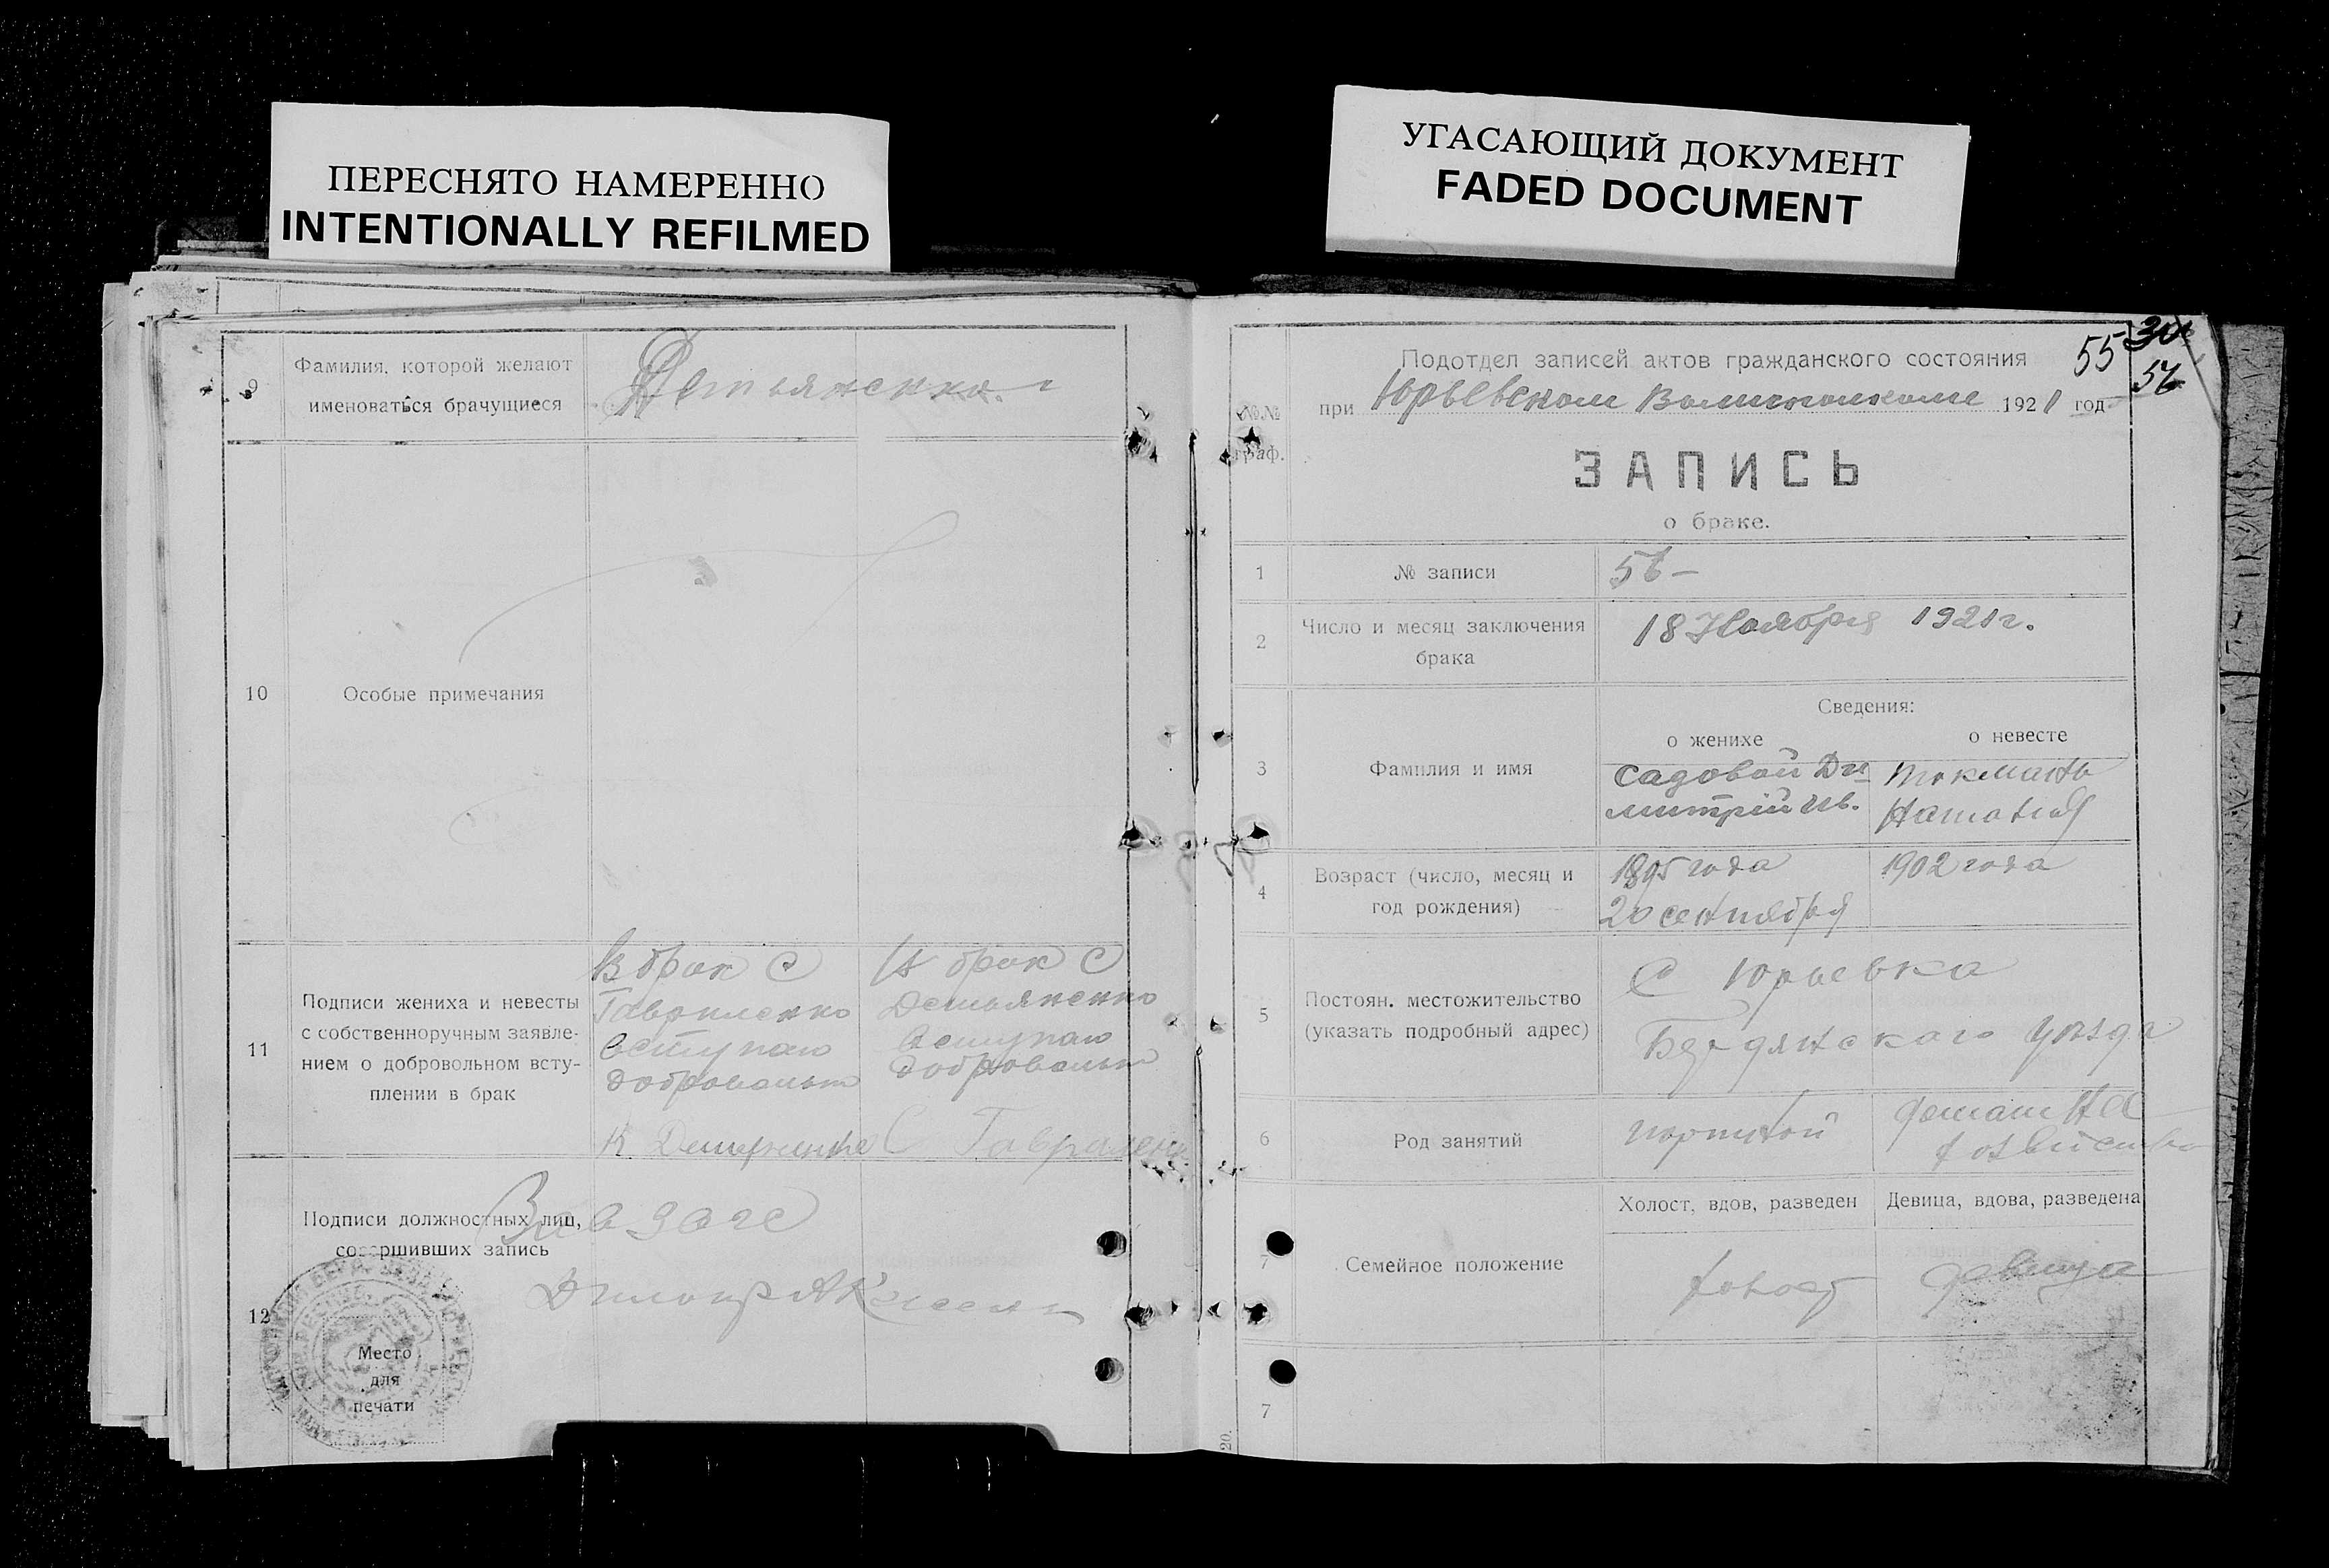 ПЕРЕСНЯТО НАМЕРЕННО
INTENTIONALLY REFILMED
УГАСАЮЩИЙ ДОКУМЕНТ
FADED DOCUMENT
9
Фамилия, которой желают
именоваться брачущиеся
10
Особые примечания
11
Подписи жениха и невесты
с собственноручным заявле-
нием о добровольном всту-
плении в брак
В брак с
Гавриленко
вступаю
добровольно
В брак с
Демьяненко
вступаю
добровольно
12
Подписи должностных лиц,
совершивших запись
Место
для
печати
55
Подотдел записей актов гражданского состояния
№№
граф.
при Юрьевском Волисполкоме 1921 год
ЗАПИСЬ
о браке.
1
№ записи
56 –
2
Число и месяц заключения
брака
18 Ноября 1921 г.
3
Фамилия и имя
Сведения:
о женихе
о невесте
Садовой Ди
митрій Ив.
Токмань
Наталия
4
Возраст (число, месяц и
год рождения)
1895 года
20 сентября
1902 года
5
Постоян. местожительство
(указать подробный адрес)
С Юрьевка
Бердянского уезда
6
Род занятий
портной
домашнее
7
Семейное положение
Холост, вдов, разведен
Девица, вдова, разведена
холост
девица
7
20.